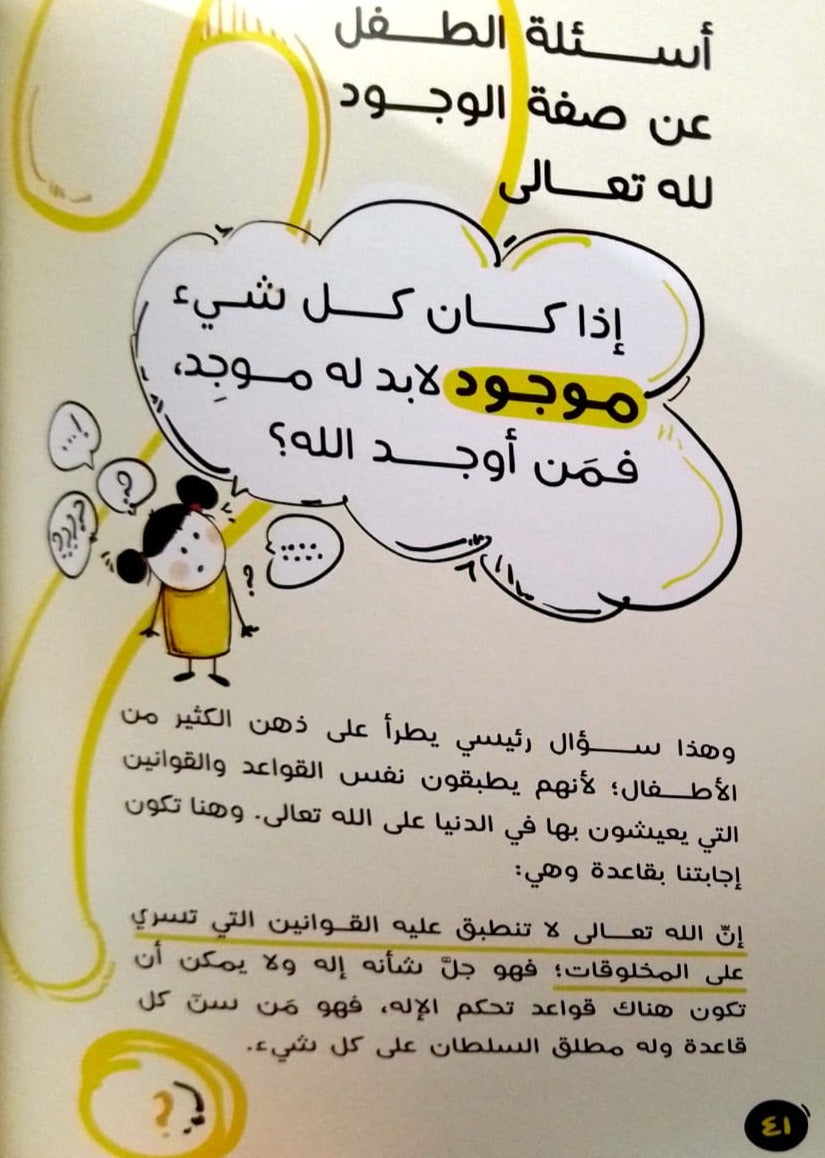 أسئلة الطفل
عن صفة الوجود
لله تعالى
إذا كان كل شيء
موجود لابد له موجِد،
فمَن أوجد الله؟
...!
؟؟!؟؟
؟
وهذا سؤال رئيسي يطرأ على ذهن الكثير من
الأطفال؛ لأنهم يطبقون نفس القواعد والقوانين
التي يعيشون بها في الدنيا على الله تعالى. وهنا تكون
إجابتنا بقاعدة وهي:
إنّ الله تعالى لا تنطبق عليه القوانين التي تسري
على المخلوقات؛ فهو جلَّ شأنه إله ولا يمكن أن
تكون هناك قواعد تحكم الإله، فهو مَن سنّ كل
قاعدة وله مطلق السلطان على كل شيء.
؟
٤١